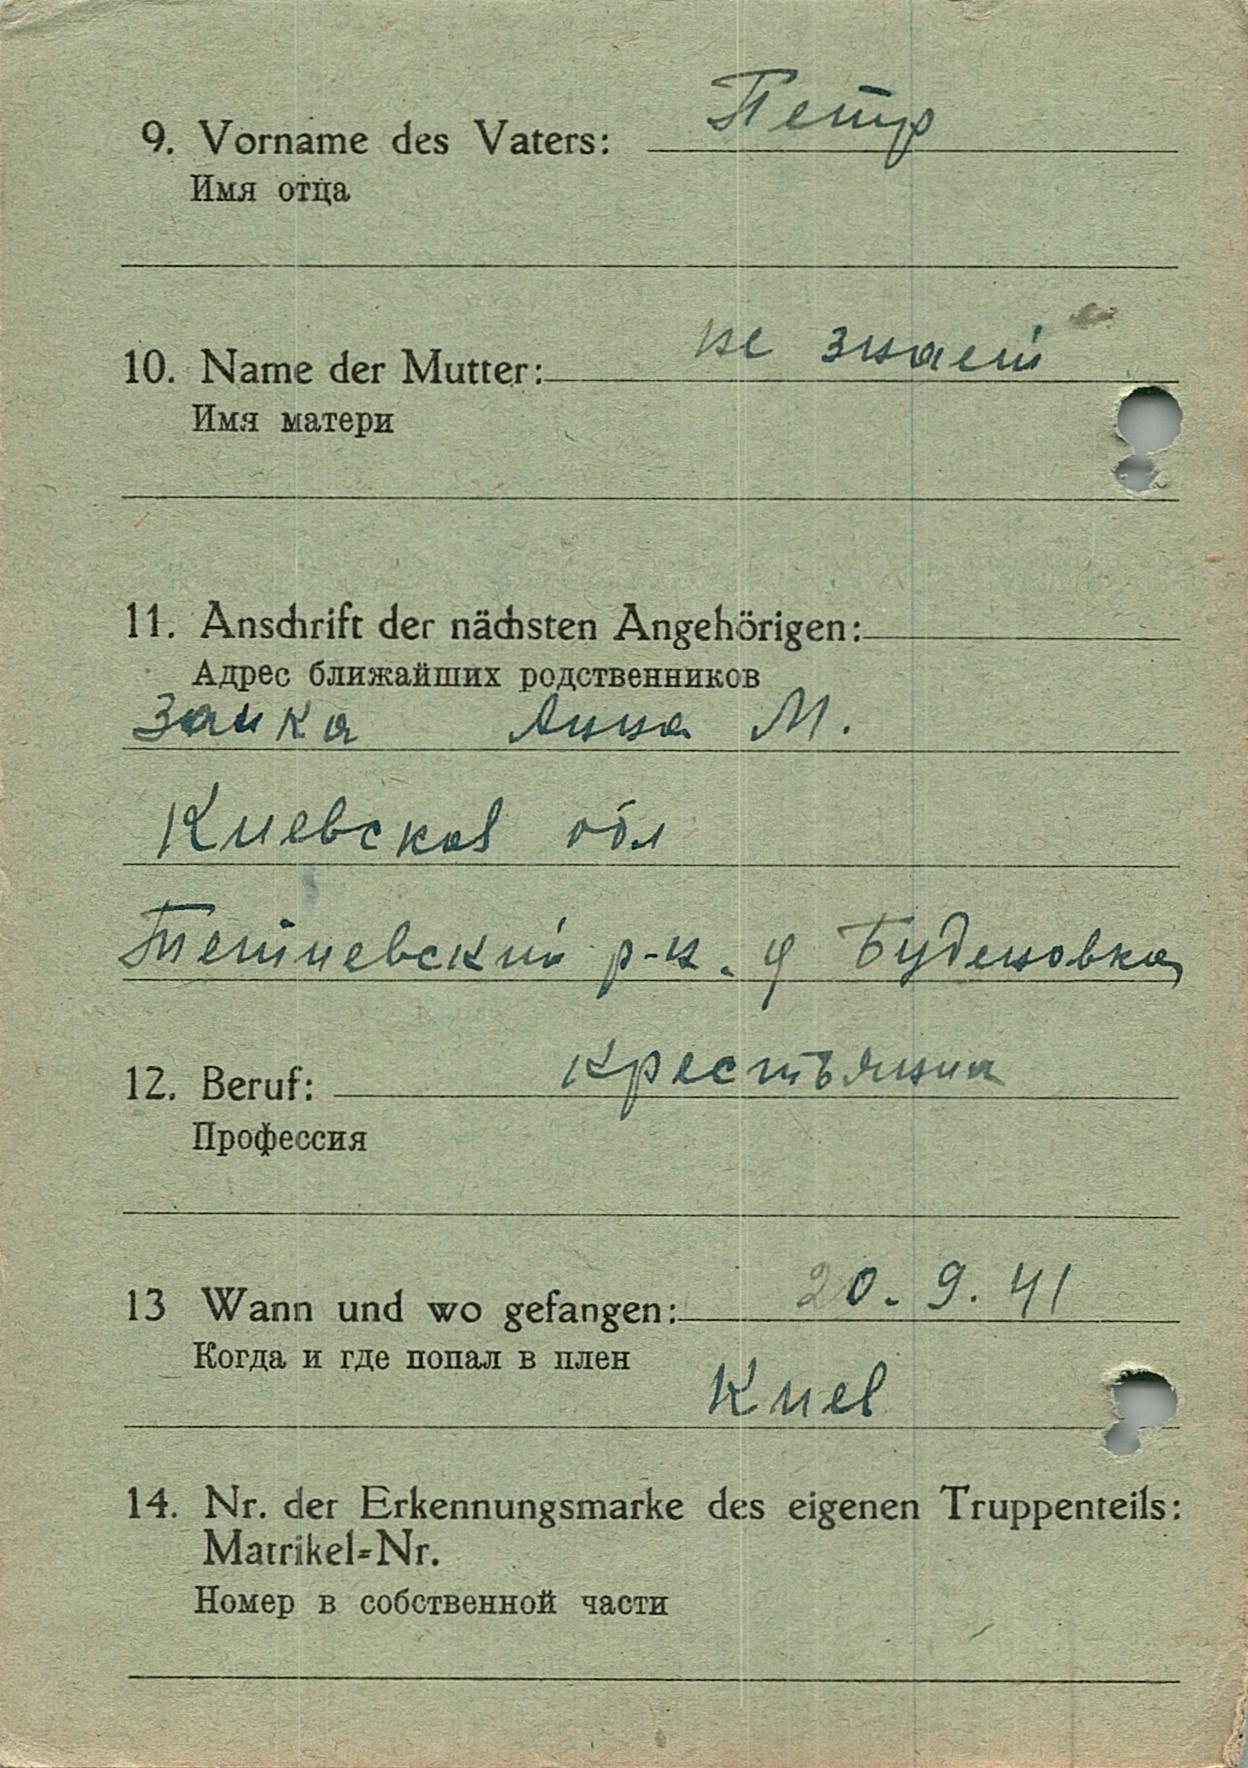 9. Vorname des Vaters: Петр
Имя отца
10. Name der Mutter: не знает
Имя матери
11. Anschrift der nächsten Angehörigen:
Адрес ближайших родственников
Заика Анна М.
Киевская обл
Тетиевский р-н. д Буденовка
12. Beruf: крестьянин
Профессия
13 Wann und wo gefangen: 20. 9. 41
Когда и где попал в плен
Киев
14. Nr. der Erkennungsmarke des eigenen Truppenteils:
Matrikel=Nr.
Номер в собственной части